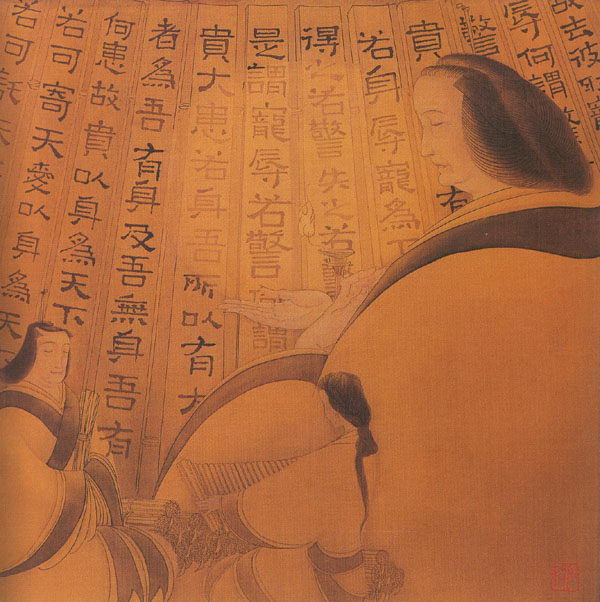 故去彼取
辱何謂
驚
貴有
若身辱寵為下
得之若驚失之若驚
是謂寵辱若驚何謂
貴大患若身吾所以有大
者為吾有身及吾無身吾有
何患故貴以身為天下
若可寄天愛以身為天下
若可託天